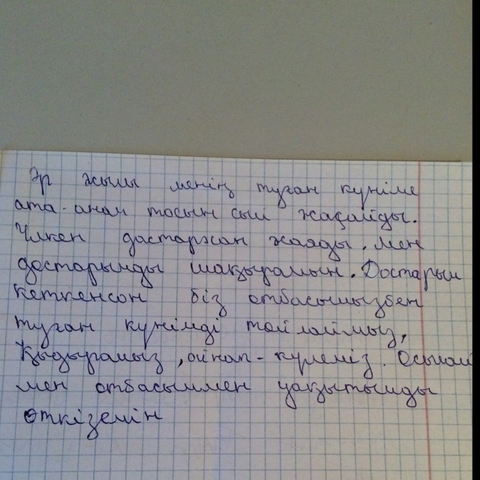 Әр жылы менің туған күніме
ата-анам тосын сый жасайды.
Үлкен дастархан жаяды. Мен
достарымды шақырамын. Достарым
кеткенсон біз отбасымызбен
туған күнімді тойлаймыз,
Қыдырамыз, ойнап-күлеміз. Осылай
мен отбасыммен уақытымды
өткіземін